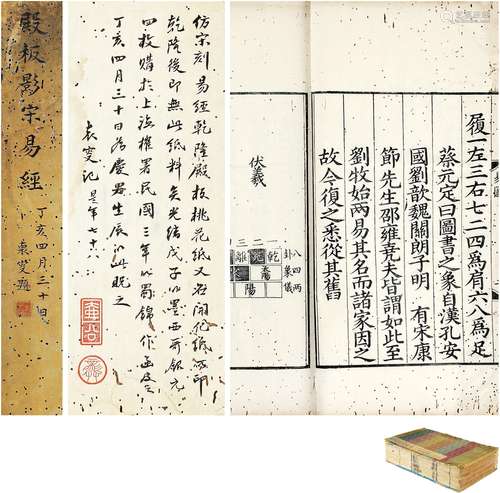 殿板影宋易經
丁亥四月三十日
袁燮題
仿宋刻易經乾隆殿板桃花紙又名開花紙所印
乾隆後即無此紙料矣光緒戊子以墨西哥銀元
四枚購於上海權署民國三年以蜀錦作函度之
丁亥四月三十日為慶君生辰以此貺之
袁燮記 是年七十八
履一左三右七二四為肩六八為足
蔡元定曰圖書之象自漢孔安
國劉歆魏關朗子明 有宋康
節先生邵雍堯夫皆謂如此至
劉牧始兩易其名而諸家因之
故今復之悉從其舊
伏羲
八四兩
卦象儀
一二三
乾兌離
陽